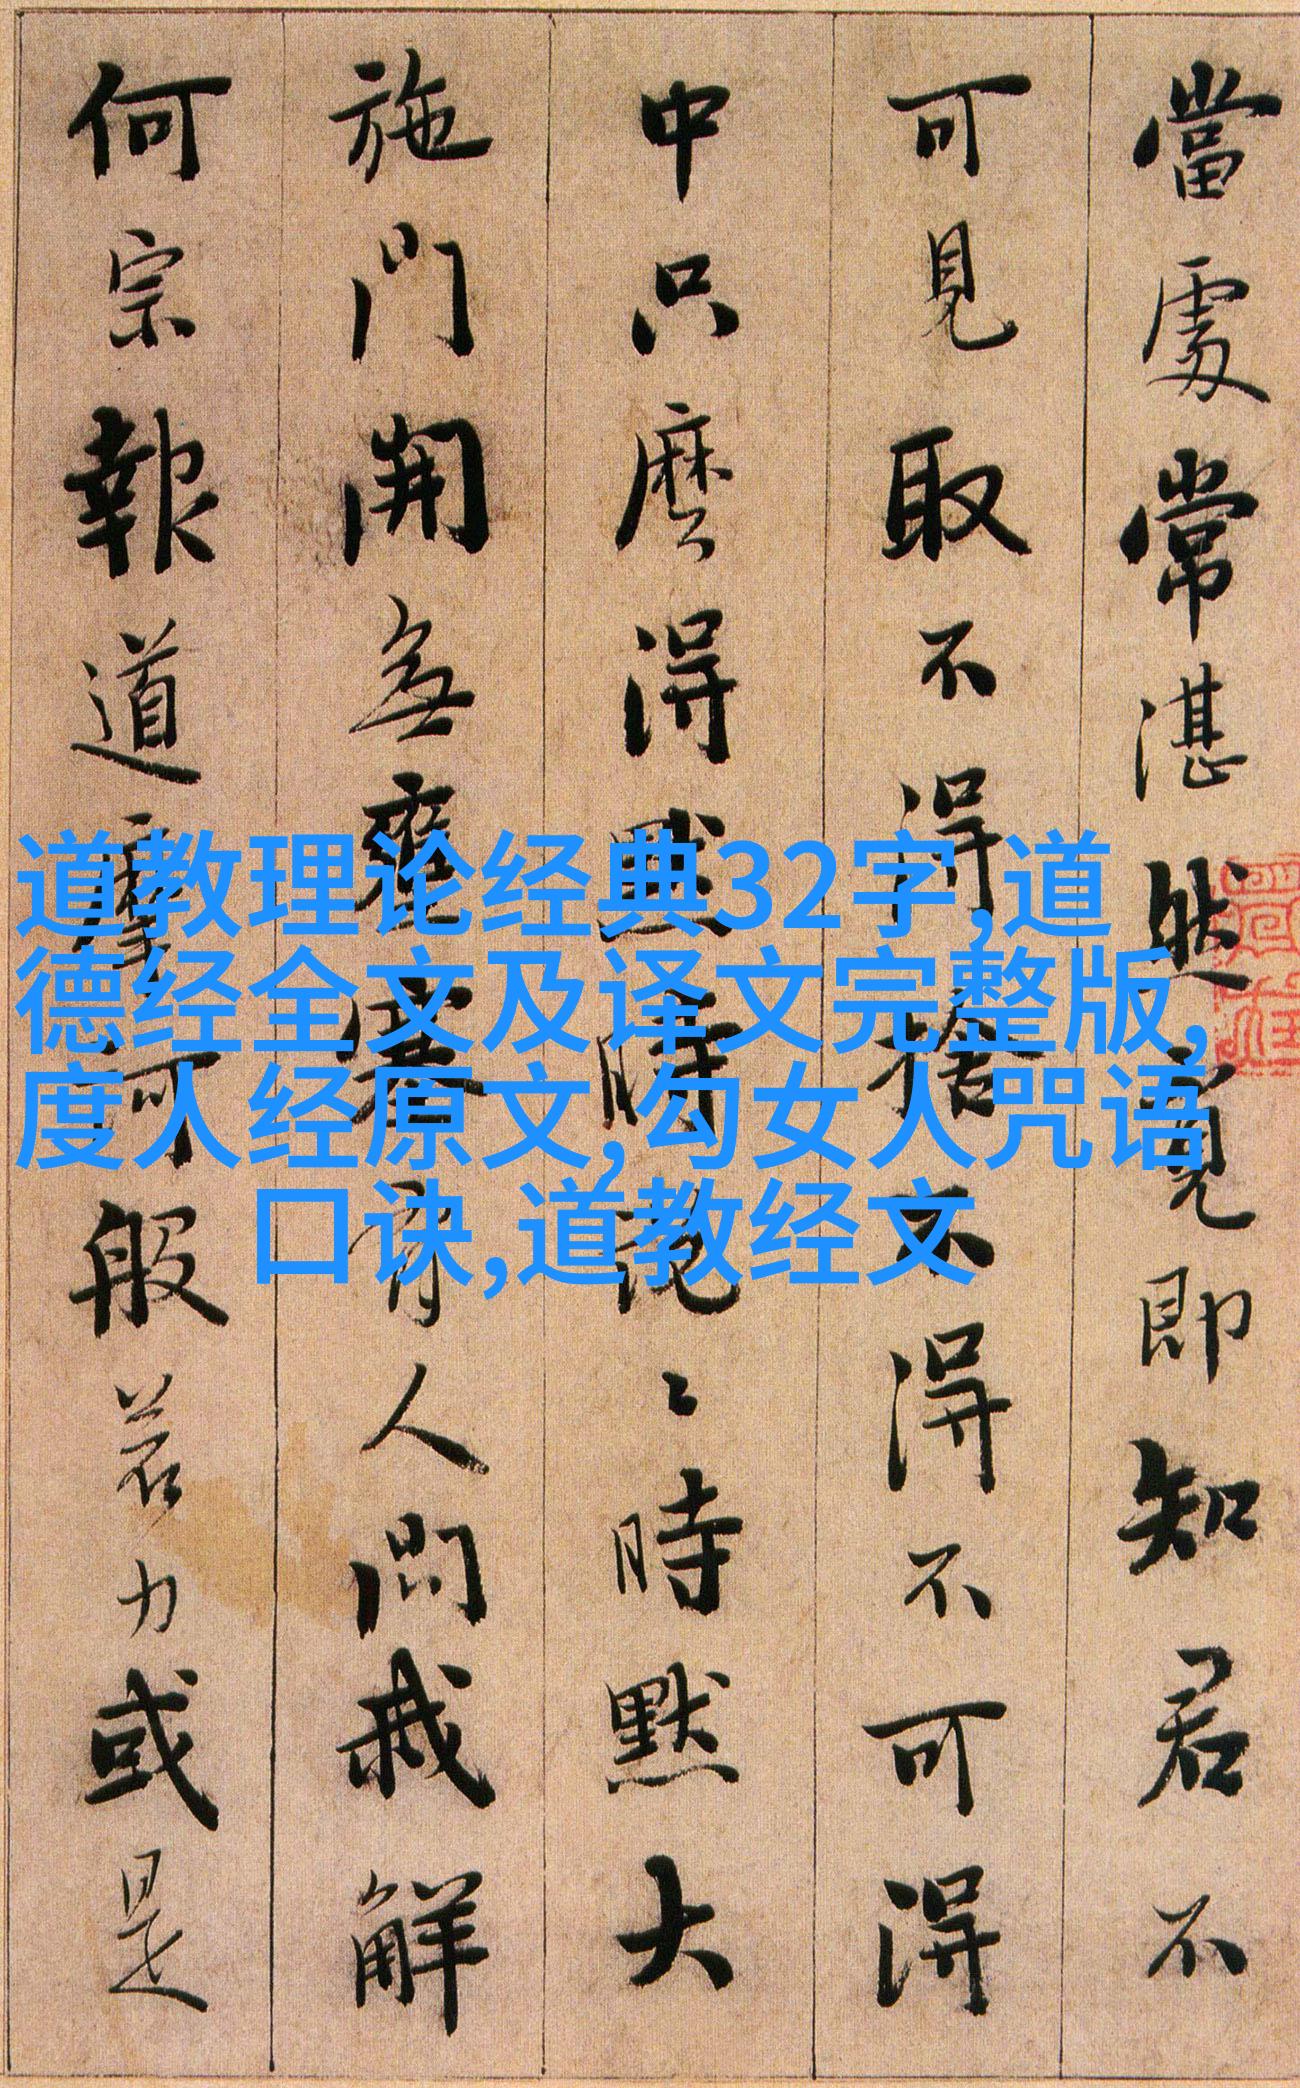 當處常湛然覓即知君不
可見取不得捨不得不可得
中只麼得默時說〻時默大
施門開無壅塞有人問我解
何宗報道摩訶般若力或是
道教理论经典32字,道
德经全文及译文完整版,
度人经原文,勾女人咒语
口诀,道教经文